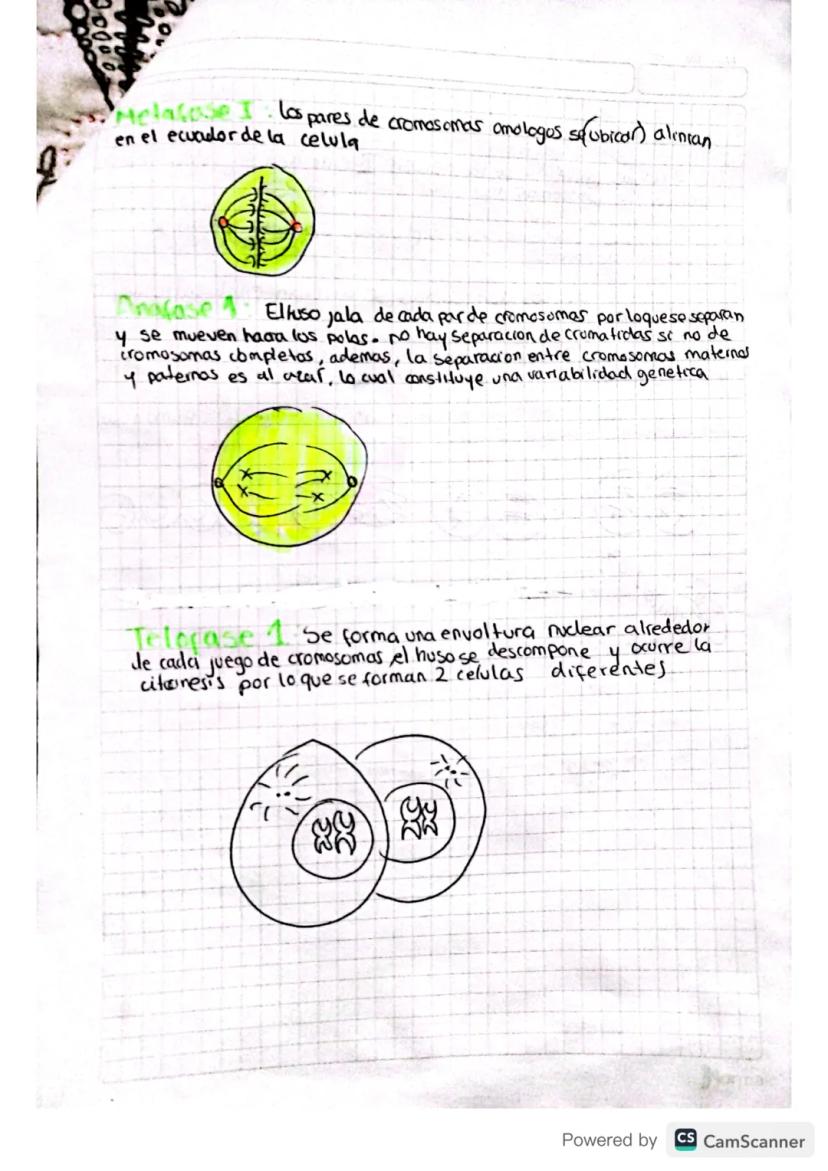 Metafase I : Los pares de cromosomas omologos se(ubican) alinean
en el ecuador de la celula
Anafase 1 : El huso jala de cada par de cromosomas por lo que se separan
y se mueven hacia los polos. no hay separacion de cromatidas si no de
cromosomas completos, ademas, la separacion entre cromosomas maternos
y paternos es al azar, lo cual constituye una variabilidad genetica
Telofase 1 Se forma una envoltura nuclear alrededor
de cada juego de cromosomas el huso se descompone y ocurre la
citonesis por lo que se forman 2 celulas diferentes
Powered by CS CamScanner